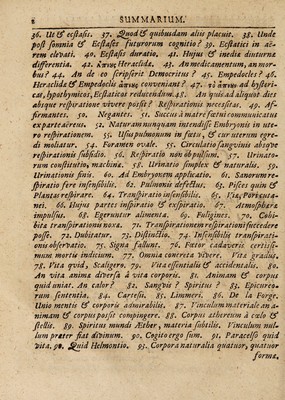 8 SUMMARIUM.
36. Ut & ecstasis. 37. Quod & quibusdam aliis placuit. 38. Unde
post somnia & Ecstases futurorum cognitio? 39. Ecstatici in aë-
rem elevati. 40. Ecstases duratio. 41. Hujus & inediæ diuturnæ
differentia. 42. ἄπνης Heraclidæ. 43. An medicamentum, an mor-
bus? 44. An de eo scripserit Democritus? 45. Empedocles? 46.
Heraclidæ & Empedoclis ἄπνης conveniant? 47. ἄπνης ad hysteri-
cas, hypothymicos, Ecstaticos reducendum. 48. An quis ad aliquot dies
absque respiratione vivere possit? Respirationis necessitas. 49. Af-
firmantes. 50. Negantes. 51. Succus à matre fœtui communicatus
ex parte aëreus. 52. Naturam nunquam intendisse Embryoni in ute-
ro respirationem. 53. Usus pulmonum in fœtu, & cur uterum egre-
di moliatur. 54. Foramen ovale. 55. Circulatio sanguinis absque
respirationis subsidio. 56. Respiratio non ob pulsum. 57. Urinato-
rum constitutio, machina. 58. Urinatio simplex & naturalis. 59.
Urinationis finis. 60. Ad Embryonem applicatio. 61. Sanorum re-
spiratio fere insensibilis. 62. Pulmonis defectus. 63. Pisces quin &
Plantæ respirare. 64. Transpiratio insensibilis. 65.
nei. 66. Hujus partes inspiratio & exspiratio. 67. Atmosphæra
impulsus. 68. Egeruntur alimenta. 69. Fuligines. 70. Cohi-
bita transpirationi noxa. 71. Transpirationem respirationi succedere
posse. 72. Dubitatur. 73. Distinctio. 74. Insensibilis transpirati-
onis observatio. 75. Signa fallunt. 76. Fœtor cadaveris certissi-
mum mortis indicium. 77. Omnia concreta vivere. Vitæ gradus,
78. Vita quid, Scaligero. 79. Vita essentialis & accidentalis. 80.
An vita anima diversa à vita corporis. 81. Animam & corpus
quid uniat. An calor? 82. Sanguis? Spiritus? 83. Epicureo-
rum sententia. 84. Cartesii. 85. Limmeri. 86. De la Forge.
Unio mentis & corporis admirabilis. 87. Vinculum materiale an a-
nimam & corpus possit compingere. 88. Corpus æthereum à cœlo &
stellis. 89. Spiritus mundi Æther, materia subtilis. Vinculum nul-
lum præter fiat divinum. 90. Cogito ergo sum. 91. Paracelso quid
vita. 92. Quid Helmontio. 93. Corpora naturalia quatuor, quatuor
formæ.